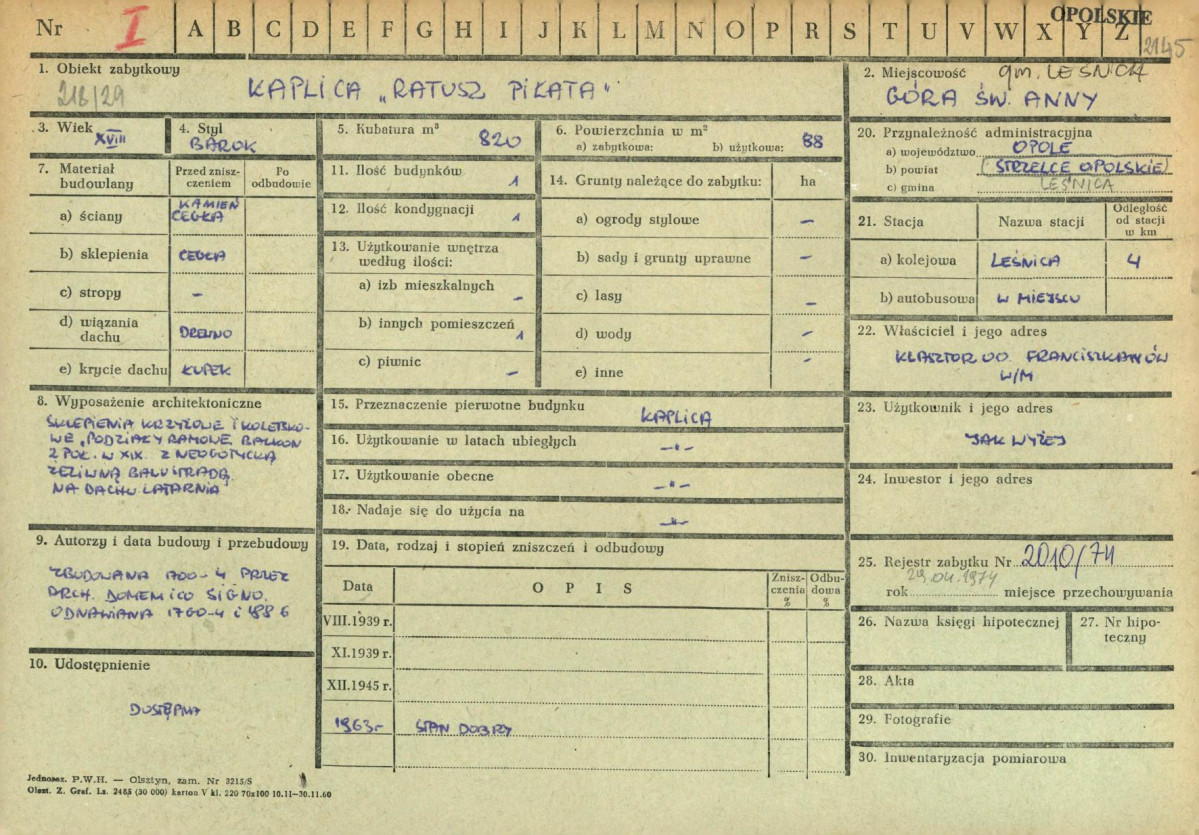 Nr I A B C D E F G H I J K L M N O P R S T U V W X Y Z
OPOLSKIE
2145
1. Obiekt zabytkowy
218/29
KAPLICA „RATUSZ PIŁATA"
2. Miejscowość gm. LEŚNICA
GÓRA ŚW. ANNY
3. Wiek
XVIII
4. Styl
BAROK
5. Kubatura m³ 820
6. Powierzchnia w m²
a) zabytkowa: b) użytkowa: 88
20. Przynależność administracyjna
a) województwo OPOLE
b) powiat STRZELCE OPOLSKIE
c) gmina LEŚNICA
7. Materiał budowlany
Przed zniszczeniem
Po odbudowie
a) ściany KAMIEŃ CEGŁA
b) sklepienia CEGŁA
c) stropy –
d) wiązania dachu DREWNO
e) krycie dachu ŁUPEK
11. Ilość budynków 1
12. Ilość kondygnacji 1
13. Użytkowanie wnętrza według ilości:
a) izb mieszkalnych –
b) innych pomieszczeń 1
c) piwnic –
14. Grunty należące do zabytku: ha
a) ogrody stylowe –
b) sady i grunty uprawne –
c) lasy –
d) wody –
e) inne –
21. Stacja
Nazwa stacji
Odległość od stacji w km
a) kolejowa LEŚNICA 4
b) autobusowa W MIEJSCU
22. Właściciel i jego adres
KLASZTOR OO. FRANCISZKANÓW
W/M
8. Wyposażenie architektoniczne
SKLEPIENIA KRZYŻOWE I KOLEBKO-
WE, PODZIAŁY RAMOWE, BALKON
Z POŁ. W XIX. Z NEOGOTYCKĄ
ŻELIWNĄ BALUSTRADĄ.
NA DACHU LATARNIA
15. Przeznaczenie pierwotne budynku KAPLICA
16. Użytkowanie w latach ubiegłych –"–
17. Użytkowanie obecne –"–
18. Nadaje się do użycia na –"–
23. Użytkownik i jego adres
JAK WYŻEJ
24. Inwestor i jego adres
9. Autorzy i data budowy i przebudowy
ZBUDOWANA 1700-4 PRZEZ
ARCH. DOMENICO SIGNO.
ODNAWIANA 1760-4 i 1886
19. Data, rodzaj i stopień zniszczeń i odbudowy
Data
O P I S
Zniszczenia %
Odbudowa %
VIII.1939 r.
XI.1939 r.
XII.1945 r.
1963r STAN DOBRY
25. Rejestr zabytku Nr 2010/74
29.04.1974
rok miejsce przechowywania
26. Nazwa księgi hipotecznej
27. Nr hipoteczny
28. Akta
29. Fotografie
30. Inwentaryzacja pomiarowa
10. Udostępnienie
DOSTĘPNA
Jednoraz. P.W.H. — Olsztyn, zam. Nr 3215/S
Olszt. Z. Graf. Lz. 2485 (30 000) karton V kl. 220 70x100 10.11—30.11.60